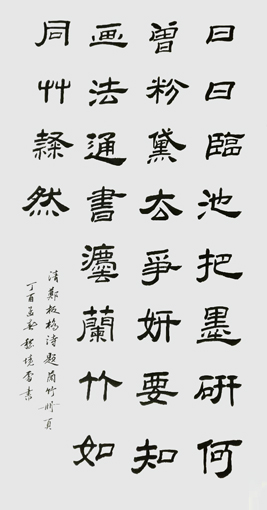 日日臨池把墨研何
曾粉黛去爭妍要知
画法通書灋蘭竹如
同艸隸然
清鄭板橋詩題蘭竹冊頁
丁酉孟春書